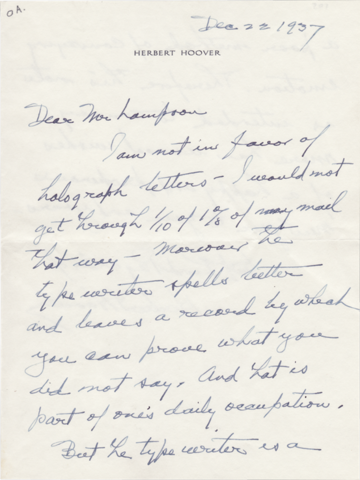 OA.
Dec 22 1937
HERBERT HOOVER
Dear Mr Lampson
I am not in favor of
holograph letters - I would not
get through 1/10 of 1% of my mail
that way - Morover the
type writer spells better
and leaves a record by which
you can prove what you
did not say. And that is
part of one's daily occupation.
But the type writer is a